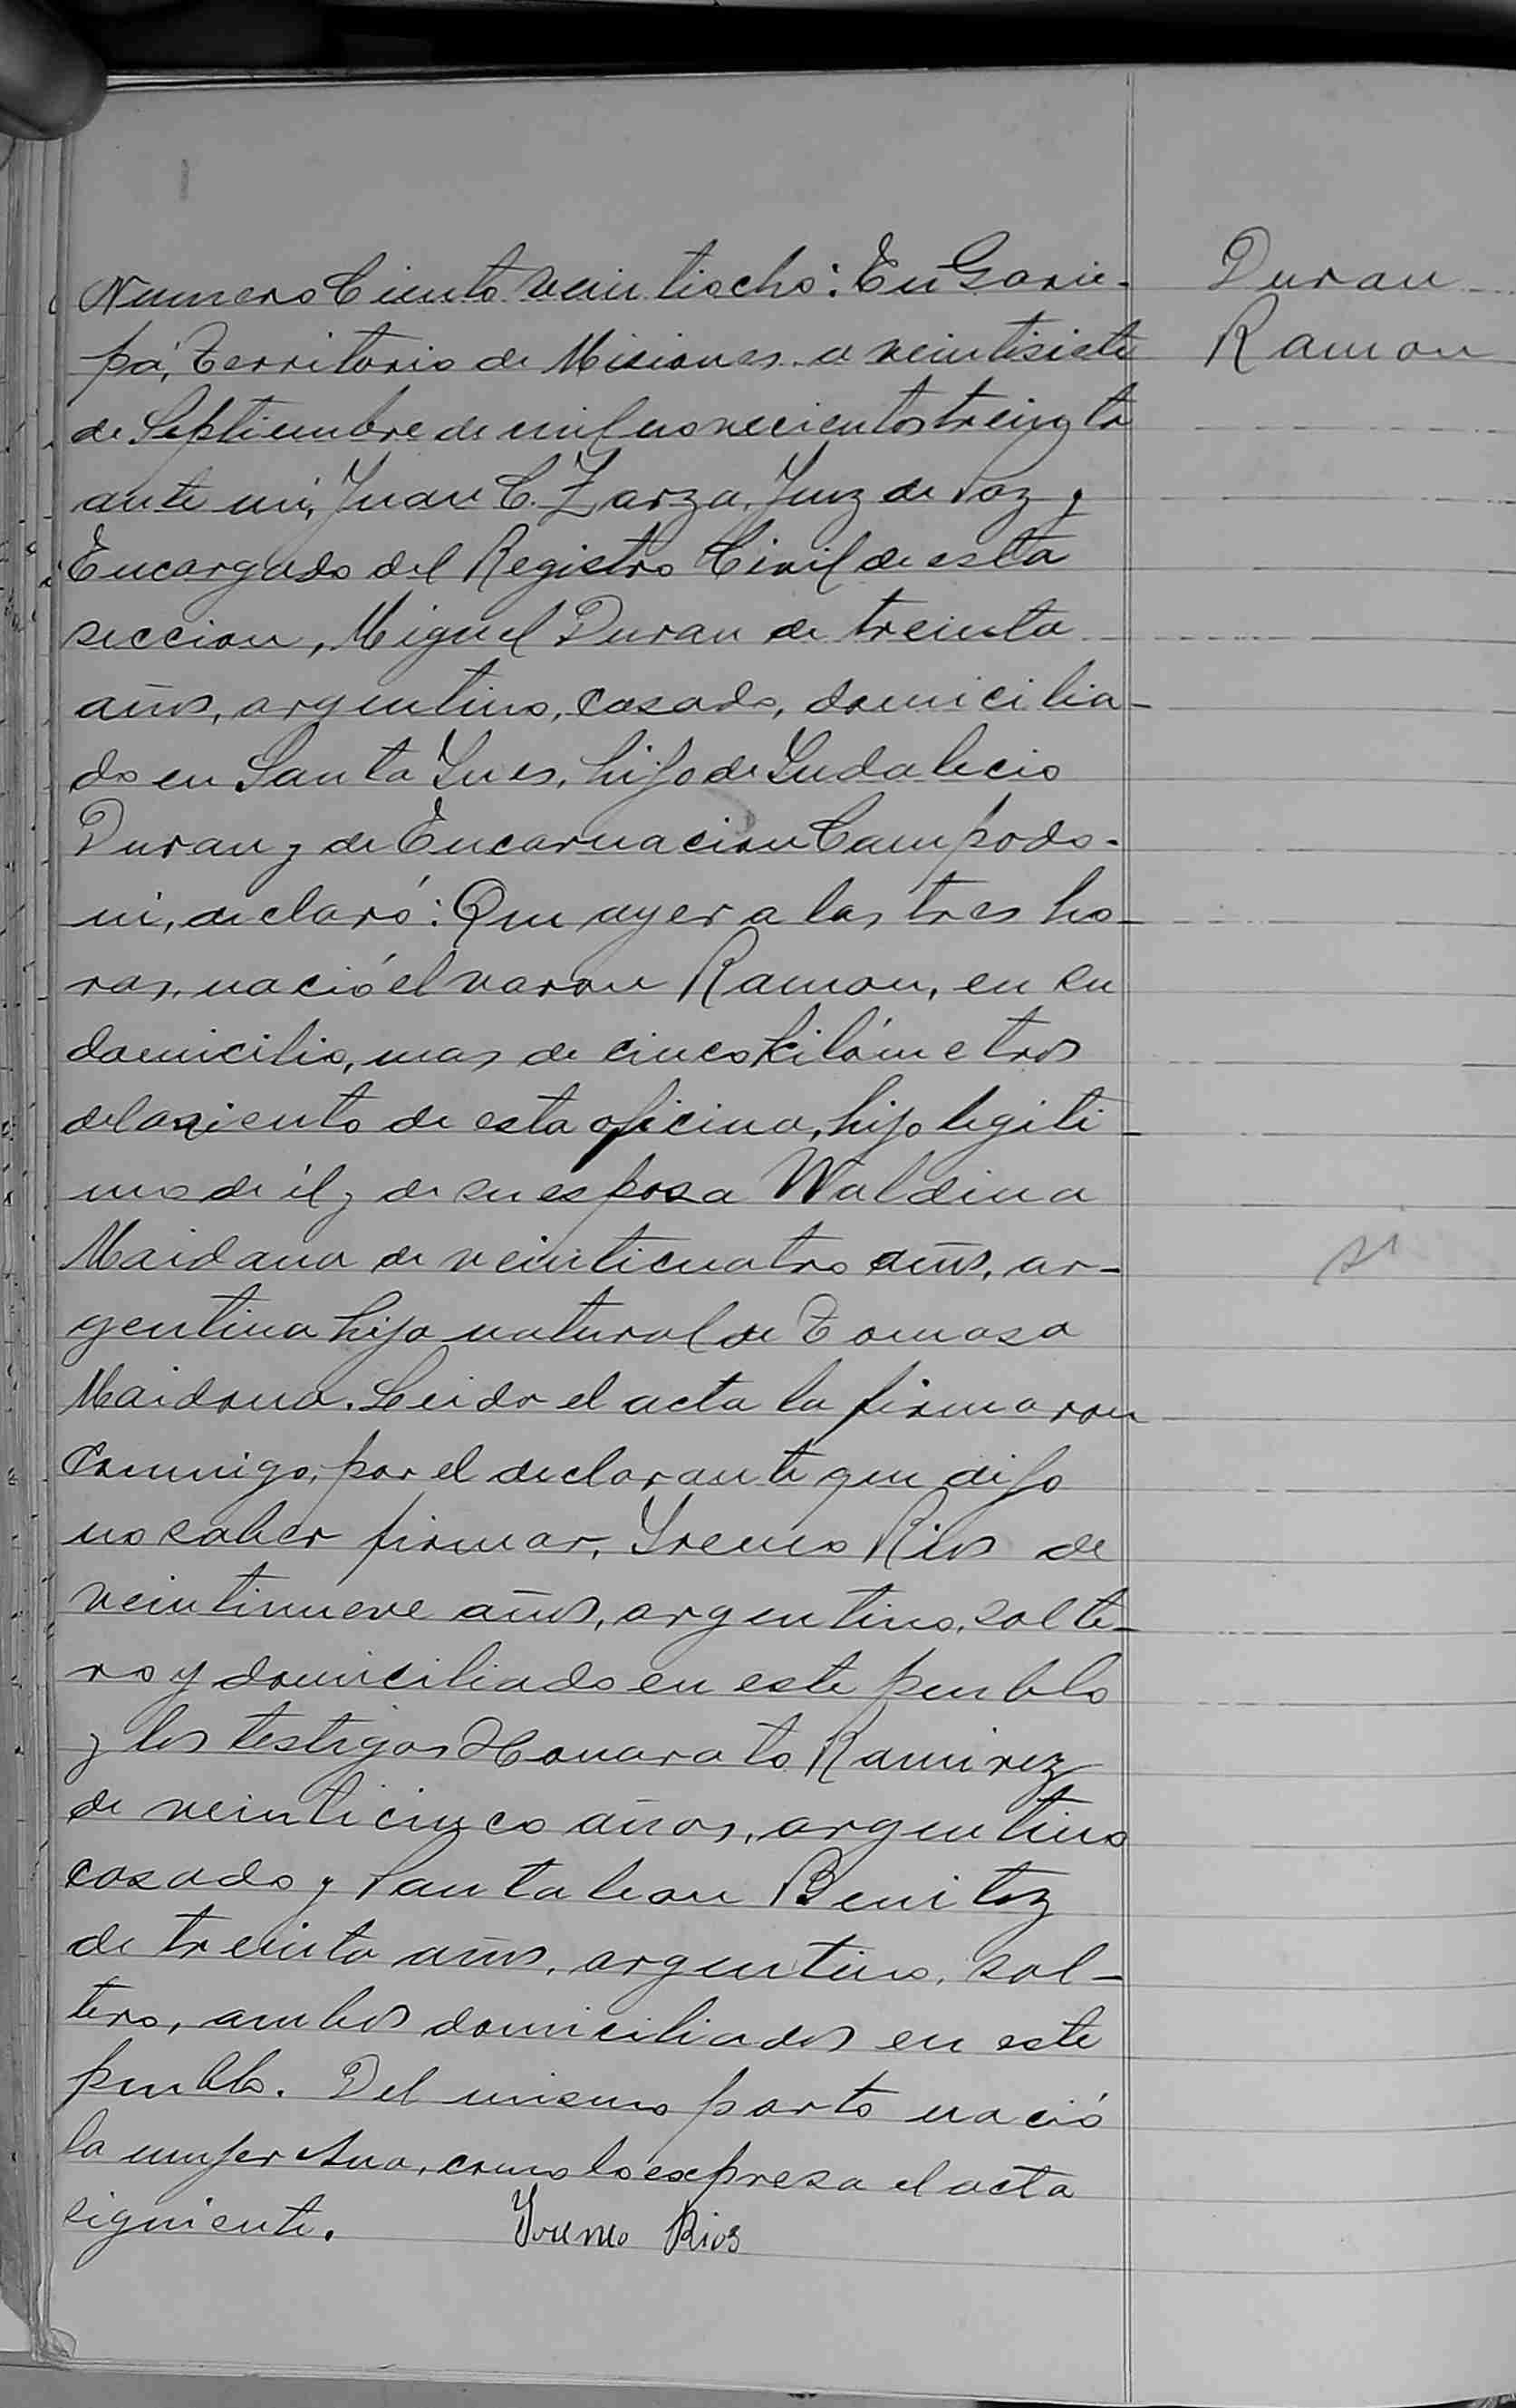 Duran
Ramon
Numero Ciento veintiocho: En Garu-
pá, Territorio de Misiones a veintisiete
de Septiembre de mil novecientos treinta
ante mi, Juan C. Zarza, Juez de Paz y
Encargado del Registro Civil de esta
seccion, Miguel Duran de treinta
años, argentino, casado, domicilia-
do en Santa Ynes, hijo de Yndalecio
Duran y de Encarnacion Campodo-
ni, declaró: Que ayer a las tres ho-
ras, nació el varon Ramon, en su
domicilio, mas de cinco Kilómetros
del asiento de esta oficina, hijo legiti-
mo de él y de su esposa Waldina
Maidana de veinticuatro años, ar-
gentina hija natural de Tomasa
Maidana. Leida el acta la firmaron
conmigo, por el declarante que dijo
no saber firmar, Yreneo Rios de
veintinueve años, argentino, solte-
ro y domiciliado en este pueblo
y los testigos Honorato Ramirez
de veinticinco años, argentino
casado y Pantaleon Benitez
de treinta años, argentino, sol-
tero, ambos domiciliados en este
pueblo. Del mismo parto nació
la mujer Ana, como lo expresa el acta
siguiente. Yreneo Rios